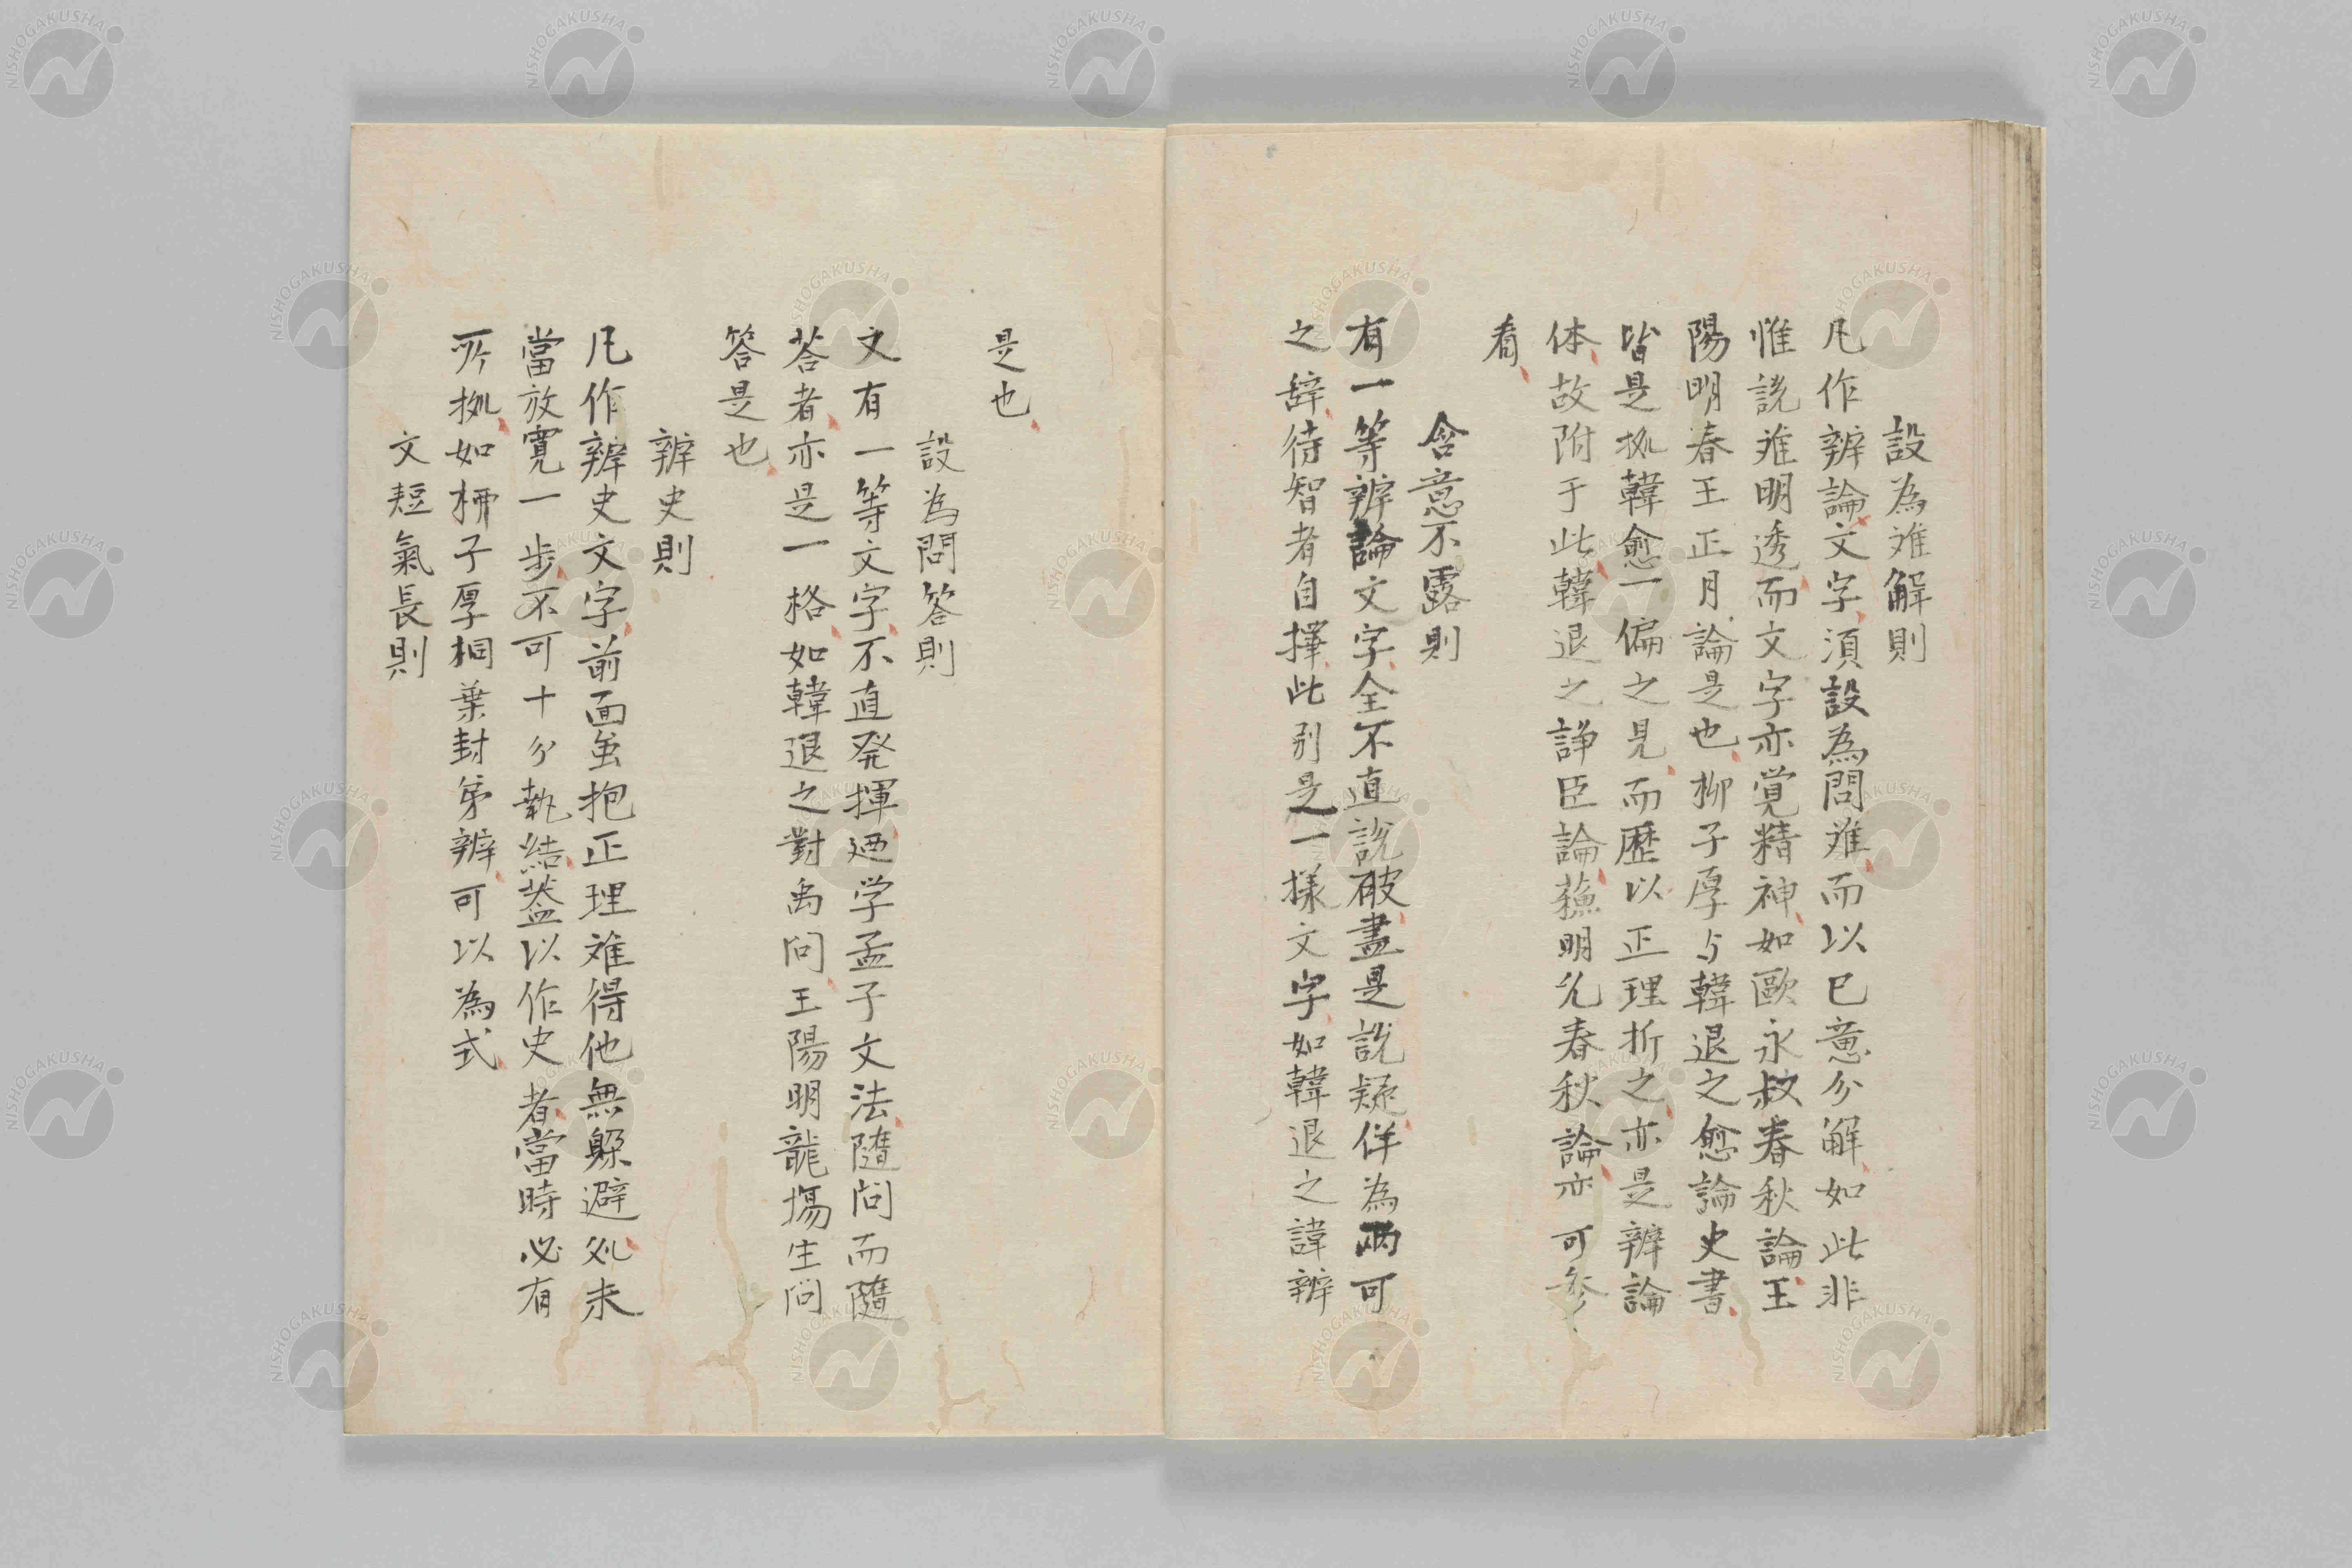 設為难解則
凡作辨論文字須設為問难而以已意分解如此非
惟説难明透而文字亦覚精神如歐永叔春秋論王
陽明春王正月論是也柳子厚与韓退之愈論史書
皆是拠韓愈一偏之見而歷以正理折之亦是辨論
体故附于此韓退之諍臣論蘓明允春秋論亦可参
看
含意不露則
有一等辨論文字全不直説破盡是説疑佯為兩可
之辞待智者自擇此别是一様文字如韓退之諱辨
是也
設為問答則
文有一等文字不直発揮廼学孟子文法隨問而隨
荅者亦是一格如韓退之對禹问王陽明龍塲生问
答是也
辨史則
凡作辨史文字前面虽抱正理难得他無躱避処未
當放寛一步不可十分執結葢以作史者當時必有
所拠如栁子厚桐葉封弟辨可以為式
文短氣長則
NISHOGAKUSHA